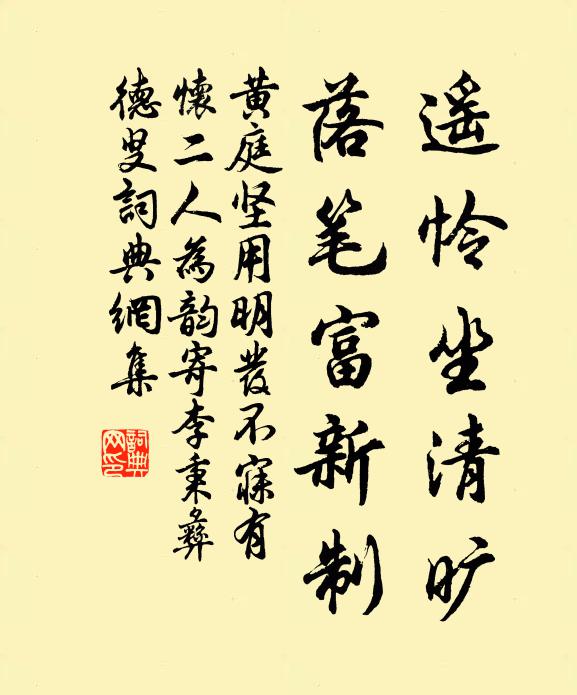 遥怜坐清旷
落笔富新制
黄庭坚用明发不寐有
懷二人為韵寄李秉彝
德叟詞典網集
詞典
网印